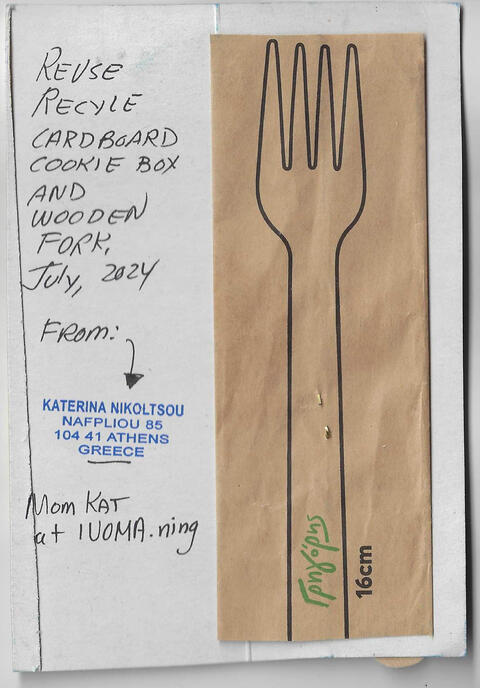 REUSE
RECYLE
CARDBOARD
COOKIE BOX
AND
WOODEN
FORK,
July, 2024
FROM:
KATERINA NIKOLTSOU
NAFPLIOU 85
104 41 ATHENS
GREECE
Mom KAT
at IUOMA.ning
Γρηγόρης
16cm